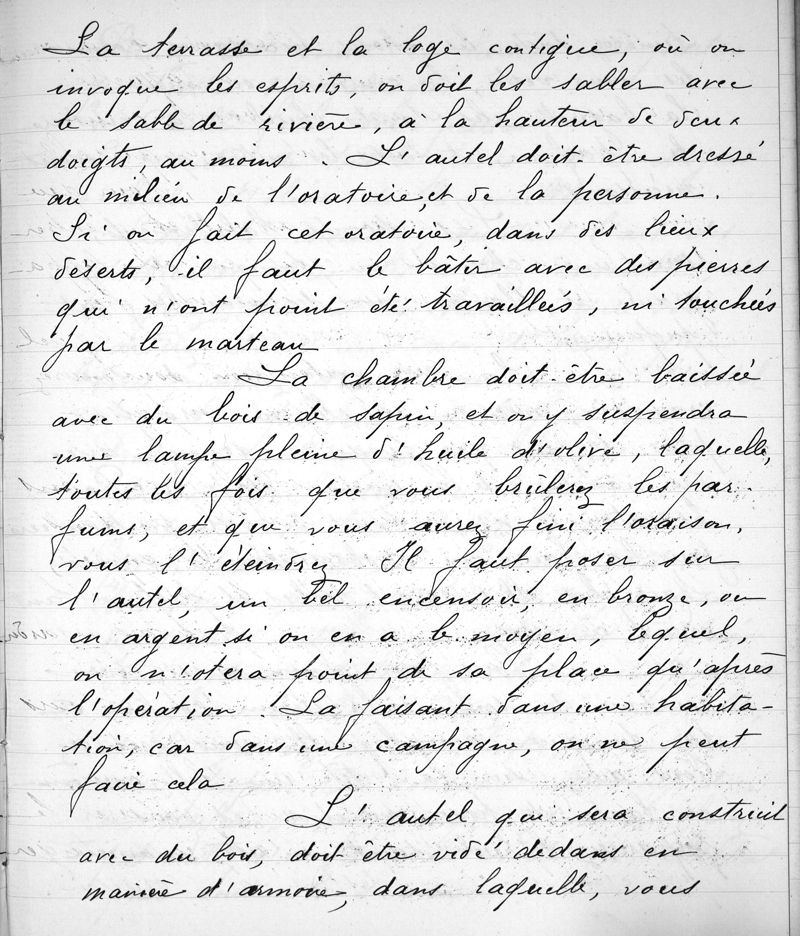 La terrasse et la loge contigue, où on
invoque les esprits, on doit les sabler avec
le sable de rivière, à la hauteur de deux
doigts, au moins. L'autel doit-être dressé
au milieu de l'oratoire, et de la personne.
Si on fait cet oratoire, dans des lieux
déserts, il faut le bâtir avec des pierres
qui n'ont point été travailleés, ni toucheés
par le marteau
La chambre doit-être baisseé
avec du bois de sapin, et on y suspendra
une lampe pleine d'huile d'olive, laquelle,
toutes les fois que vous brûlerez les par-
fums, et que vous aurez fini l'oraison,
vous l'éteindrez Il faut poser sur
l'autel, un bel encensoir, en bronze, ou
en argent si on en a le moyen, lequel,
on n'otera point de sa place qu'après
l'opération. La faisant dans une habita-
tion, car dans une campagne, on ne peut
faire cela
L'autel qui sera construit
avec du bois, doit être vidé dedans en
manière d'armoire, dans laquelle, vous